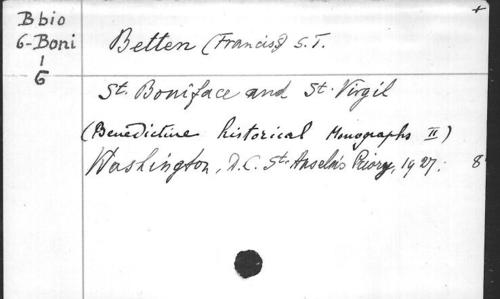 +
B bio
6-Boni
1
6
Betten (Francis) S.T.
St. Boniface and St. Virgil
(Benedictine historical Monographs II)
Washington, D.C. St. Anselm's Priory, 1927. 8°